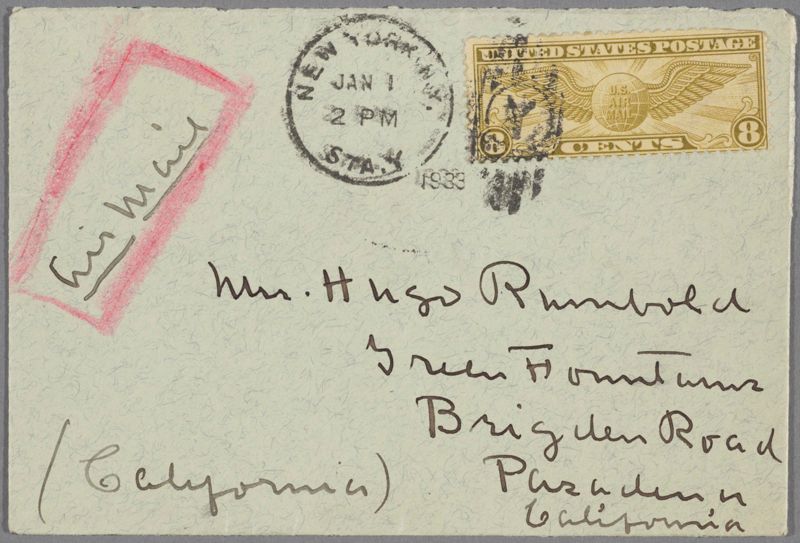 NEW YORK, N.Y.
JAN 1
2 PM
STA. Y
1933
UNITED STATES POSTAGE
U.S.
AIR
MAIL
8 CENTS 8
Air Mail
Mr. Hugo Rumbold
Green Fountains
Brigden Road
Pasadena
California
(California)